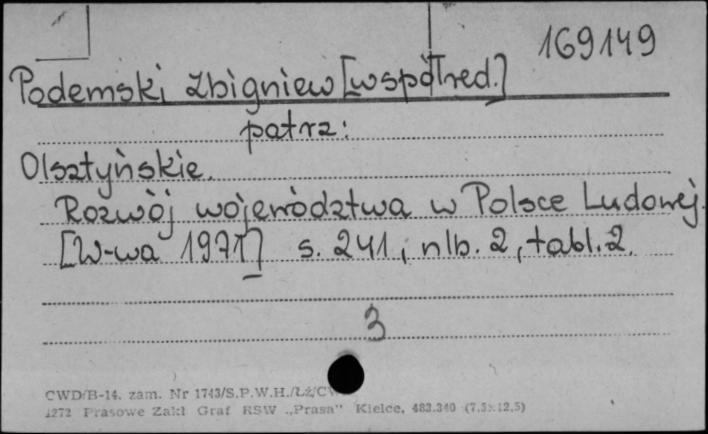 169149
Podemski Zbigniew [współred.]
patrz:
Olsztyńskie.
Rozwój województwa w Polsce Ludowej.
[W-wa 1971] s. 241, nlb. 2, tabl. 2.
3
CWD/B-14. zam. Nr 1743/S.P.W.H./Łź/CW
1272 Prasowe Zakł Graf RSW „Prasa" Kielce, 483.340 (7,5x12,5)